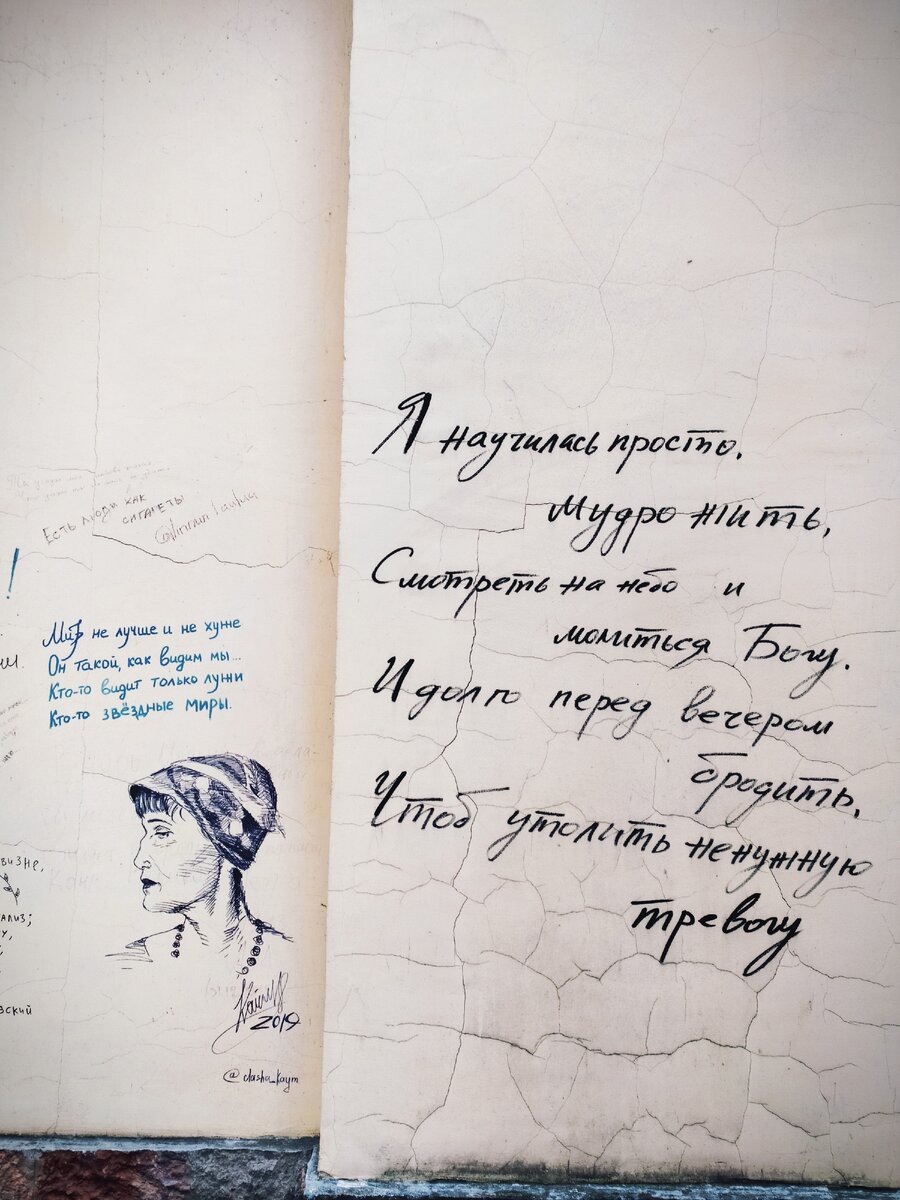 Есть люди как
сигареты
!
Мир не лучше и не хуже
Он такой, как видим мы...
Кто-то видит только лужи
Кто-то звёздные миры.
2019
@dasha_kaym
Я научилась просто,
мудро жить,
Смотреть на небо и
молиться Богу.
И долго перед вечером
бродить,
Чтоб утолить ненужную
тревогу